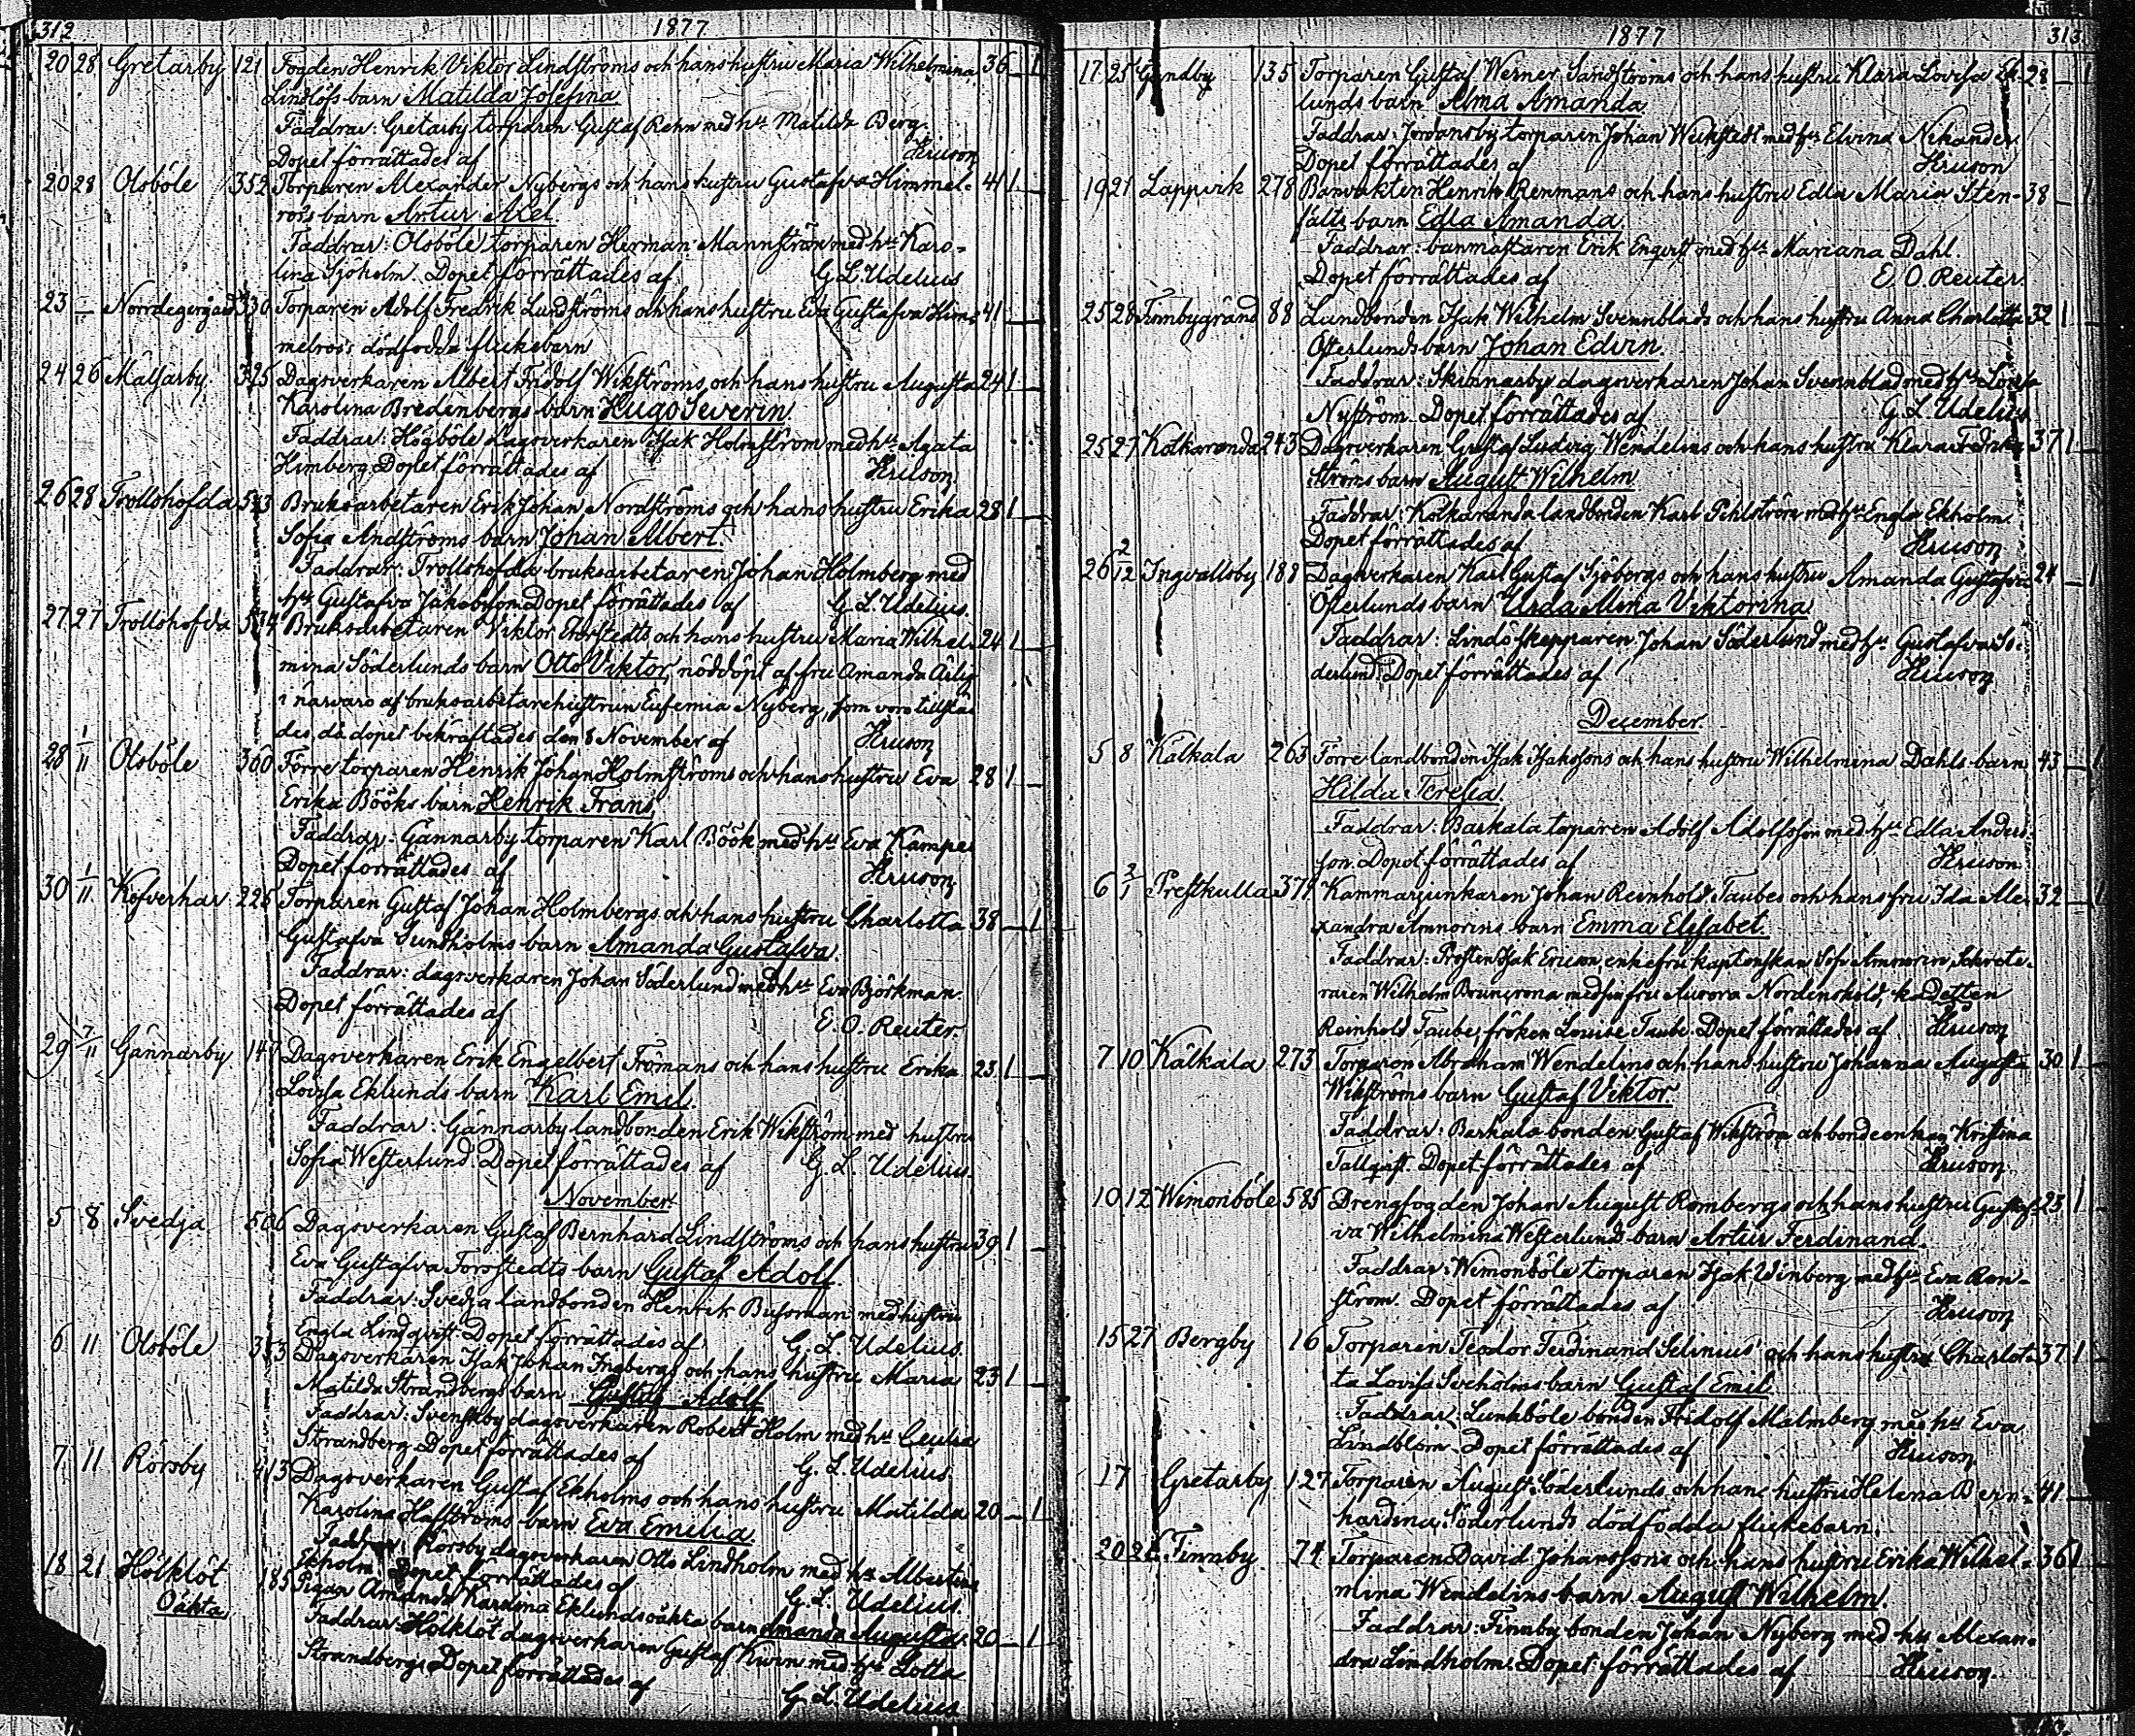 312 1877
20 28 Gretarby 121 Fogden Henrik Viktor Lindströms och hans hustru Maria Wilhelmina 36 — 1
Lindlöfs barn Matilda Josefina
Faddrar: Gretarby torparen Gustaf Rehn med h:u Matilda Berg.
Dopet förrättades af Hruson
20 28 Olsböle 352 Torparen Alexander Nybergs och hans hustru Gustafva Himmel- 41 1 —
ros's barn Artur Axel.
Faddrar: Olsböle torparen Herman Mannström med h:u Karo-
lina Sjöholm. Dopet förrättades af G. L. Udelius
23 — Norrdegergård 330 Torparen Adolf Fredrik Lundströms och hans hustru Eva Gustafva Him- 41 —
melros's dödfödda flickebarn
24 26 Malsarby 325 Dagsverkaren Albert Fridolf Wikströms och hans hustru Augusta 24 1 —
Karolina Bredenbergs barn Hugo Severin.
Faddrar: Högböle dagsverkaren Isak Holmström med h:u Agata
Himberg. Dopet förrättades af Hruson
26 28 Trollshofda 543 Bruksarbetaren Erik Johan Nordströms och hans hustru Erika 28 1 —
Sofia Andströms barn Johan Albert.
Faddrar: Trollshofda bruksarbetaren Johan Holmberg med
h:u Gustafva Jakobsson. Dopet förrättades af G. L. Udelius.
27 27 Trollshofda 574 Bruksarbetaren Viktor Thorstedts och hans hustru Maria Wilhel- 24 1 —
mina Söderlunds barn Otto Viktor, nöddöpt af fru Amanda Ärlig
i närvaro af bruksarbetarehustrun Eufemia Nyberg, som voro tillstä-
des, då dopet bekräftades den 8 November af Hruson
28 1/11 Olsböle 300 Förre torparen Henrik Johan Holmströms och hans hustru Eva 28 1 —
Erika Bööks barn Henrik Frans.
Faddrar: Gännarby torparen Karl Böök med h:u Eva Kämpe
Dopet förrättades af Hruson
30 1/11 Kofverhar 225 Torparen Gustaf Johan Holmbergs och hans hustru Charlotta 38 — 1
Gustafva Sundholms barn Amanda Gustafva.
Faddrar: dagsverkaren Johan Söderlund med h:u Eva Björkman.
Dopet förrättades af E. O. Reuter.
29 7/11 Gännarby 147 Dagsverkaren Erik Engelbert Frömans och hans hustru Erika 23 1 —
Lovisa Eklunds barn Karl Emil.
Faddrar: Gännarby landbonden Erik Wikström med hustru
Sofia Westerlund. Dopet förrättades af G. L. Udelius.
November.
5 8 Svedja 506 Dagsverkaren Gustaf Bernhard Lindströms och hans hustru 39 1 —
Eva Gustafva Forsstedts barn Gustaf Adolf.
Faddrar: Svedja landbonden Henrik Bussman med hustru
Engla Lindqvist. Dopet förrättades af G. L. Udelius.
6 11 Olsböle 353 Dagsverkaren Isak Johan Ingbergs och hans hustru Maria 23 1 —
Matilda Strandbergs barn Gustaf Adolf
Faddrar: Svenskby dagsverkaren Robert Holm med h:u Cecilia
Strandberg. Dopet förrättades af G. L. Udelius.
7 11 Rörsby 413 Dagsverkaren Gustaf Ekholms och hans hustru Matilda 20 — 1
Karolina Hafströms barn Eva Emelia.
Faddrar: Rörsby dagsverkaren Otto Lindholm med h:u Albertina
Ekholm. Dopet förrättades af G. L. Udelius.
18 21 Hölklöt 185 Pigan Amanda Karolina Eklunds oäkta barn Amanda Augusta. 20 — 1
Oäkta Faddrar: Hölklöt dagsverkaren Gustaf Kwin med h:u Lotta
Strandberg. Dopet förrättades af
G. L. Udelius
1877 313
17 25 Gundby 135 Torparen Gustaf Werner Sandströms och hans hustru Klara Lovisa Ek- 28 — 1
lunds barn Alma Amanda
Faddrar: Jordansby torparen Johan Weikstedt med h:u Elvina Nikander
Dopet förrättades af Hruson
19 21 Lappvik 278 Banvakten Henrik Renmans och hans hustru Edla Maria Sten- 38 — 1
fälts barn Edla Amanda
Faddrar: banmästaren Erik Engvist med h:u Mariana Dahl.
Dopet förrättades af E. O. Reuter.
25 28 Trimbygränd 88 Landbonden Isak Wilhelm Svennblads och hans hustru Anna Charlotta 32 1 —
Österlunds barn Johan Edvin.
Faddrar: Skrinnarby dagsverkaren Johan Svennblad med h:u Lovisa
Nyström. Dopet förrättades af G. L. Udelius
25 27 Kolkaranda 243 Dagsverkaren Gustaf Ludvig Wendelins och hans hustru Klara Fredrika 37 1 —
Ströms barn August Wilhelm.
Faddrar: Kolkaranda landbonden Karl Pihlström med h:u Engla Ekholm.
Dopet förrättades af Hruson
26 2/12 Ingvallsby 188 Dagsverkaren Karl Gustaf Sjöbergs och hans hustru Amanda Gustafva 24 — 1
Österlunds barn Urda Mina Viktorina
Faddrar: Lindö skepparen Johan Söderlund med h:u Gustafva Sö-
derlund. Dopet förrättades af Hruson
December
5 8 Kälkala 263 Förre landbonden Isak Isakssons och hans hustru Wilhelmina Dahls barn 43 — 1
Hilda Teresia.
Faddrar: Baskala torparen Adolf Adolfsson med h:u Edla Anders-
son. Dopet förrättades af Hruson.
6 3/1 Prestkulla 379 Kammarjunkaren Johan Reinhold Taubes och hans fru Ida Ale- 32 — 1
xandra Amnorins barn Emma Elisabet.
Faddrar: Prosten Isak Ericson, enkefru kaptenskan Sofi Amnorin, Sekrete-
raren Wilhelm Bruncrona med sin fru Aurora Nordensköld, kadetten
Reinhold Taube, fröken Louise Taube. Dopet förrättades af Hruson
7 10 Kälkala 273 Torparen Abraham Wendelins och hans hustru Johanna Augusta 30 1 —
Wikströms barn Gustaf Viktor.
Faddrar: Baskala bonden Gustaf Wikström och bondeenkan Kristina
Tallqvist. Dopet förrättades af Hruson
10 12 Wimonböle 585 Drengfogden Johan August Rombergs och hans hustru Gustaf- 23 1 —
va Wilhelmina Westerlunds barn Artur Ferdinand.
Faddrar: Wimonböle torparen Isak Winberg med h:u Eva Ren-
ström. Dopet förrättades af Hruson
15 27 Bergby 16 Torparen Teodor Ferdinand Selinius' och hans hustru Charlot- 37 1 —
ta Lovisa Sveholms barn Gustaf Emil
Faddrar: Lunkböle bonden Fridolf Malmberg med h:u Eva
Lindblom. Dopet förrättades af Hruson
17 Gretarby 127 Torparen August Söderlunds och hans hustru Helena Bern- 41 —
hardina Söderlunds dödfödda flickebarn.
20 26 Finnby 74 Torparen David Johanssons och hans hustru Erika Wilhel- 36 1
mina Wendelins barn August Wilhelm.
Faddrar: Finnby bonden Johan Nyberg med h:u Alexan-
dra Lindholm. Dopet förrättades af Hruson.